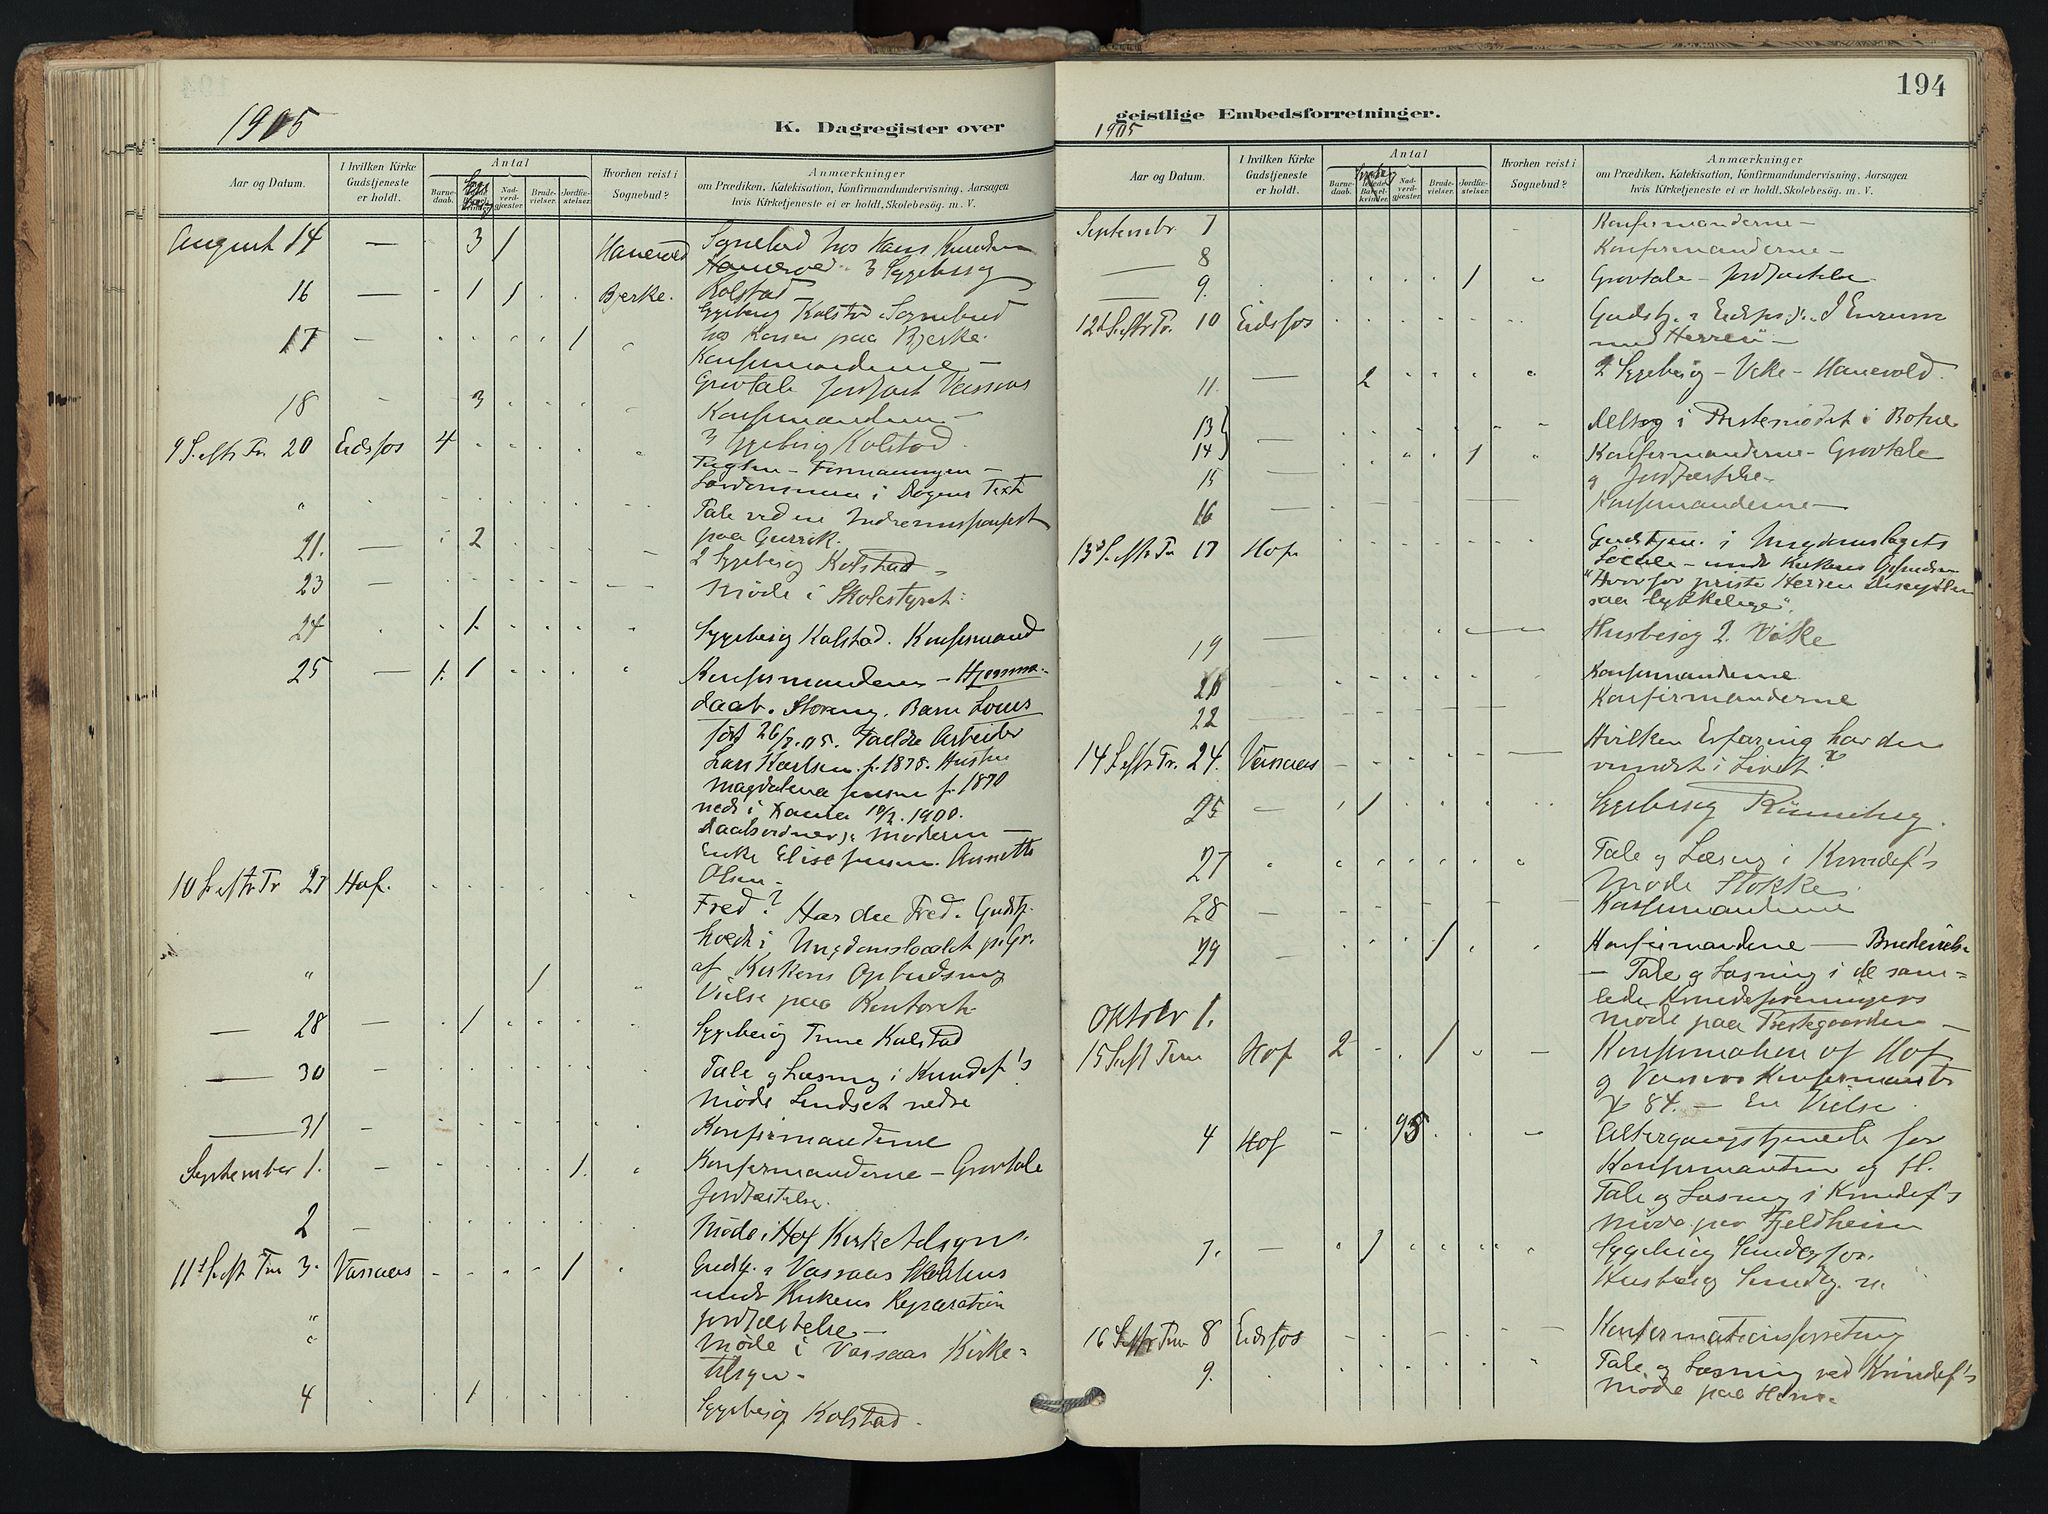 1905
K. Dagregister over
Aar og Datum.
I hvilken Kirke
Gudstjeneste
er holdt.
Antal
Barne-
daab.
Nad-
verd-
gjæster.
Brude-
vielser.
Jordfæ-
stelser.
Hvorhen reist i
Sognebud?
Anmærkninger
om Prædiken, Katekisation, Konfirmandundervisning, Aarsagen
hvis Kirketjeneste ei er holdt, Skolebesøg. m. V.
August 14 — 3 1 Hanevold Sognebud hos Hans Knudsen
Hanevold. 3 Sygebesøg
Kolstad —
16 — 1 1 Bjerke. Sygebesøg Kolstad Sognebud
paa Bjerke.
17 — 1 Konfirmanderne —
Gravtale Jordfæst Vassaas
18 3 Konfirmanderne —
3 Sygebesøg Kolstad.
9 S. eftr Tr. 20 Eidsfos 4
i Dagens Text
Tale ved en
paa
21. — 2 2 Sygebesøg Kolstad
23 — Møde i Skolestyret.
24 1 Sygebesøg Kolstad. Konfirmand
25 — 1. 1 Konfirmanderne — Hjemme-
daab. Barn Louis
født 26/7.05. Forældre Arbeider
Lars Karlsen f. 1875. Hustru
Magdalena Jensen f. 1870
1900.
Moderen —
Enke Elise Jensen. Annette
Olsen —
10 S. eftr Tr 27 Hof. Fred? Har du Fred. Gudstj.
holdt i Ungdomslocalet p. Gr.
af Kirkens Opbudsning
" 1 Vielse paa Kontoret.
— 28 — 1 Sygebesøg Kolstad
— 30 Tale og Læsning i Kvindef's
Møde Lindset nedre
— 31 - Konfirmanderne
September 1. - 1. Konfirmanderne — Gravtale
Jordfæstelse.
2 - Møde i Hof Kirke Tilsyn.
11te S. eft. Trin 3. Vassaas 1 Gudstj. i Vassaas Skolehus
under Kirkens Reparation
Jordfæstelse —
" Møde i Vassaas Kirke-
tilsyn.
4 1 Sygebesøg Kolstad.
194
1905
geistlige Embedsforretninger.
Aar og Datum.
I hvilken Kirke
Gudstjeneste
er holdt.
Antal
Barne-
daab.
Nad-
verd-
gjæster.
Brude-
vielser.
Jordfæ-
stelser.
Hvorhen reist i
Sognebud?
Anmærkninger
om Prædiken, Katekisation, Konfirmandundervisning, Aarsagen
hvis Kirketjeneste ei er holdt, Skolebesøg. m. V.
Septembr 7 Konfirmanderne —
— 8 Konfirmanderne —
— 9. 1 Gravtale — Jordfæstelse
12te S. eftr Tr. 10 Eidsfos Gudstj. i Eidsfos: "I Enrum
med Herren" —
11. — 2 2 Sygebesøg — Veke — Hanevold.
13 } Deltog i Prestemødet i Botne
14 } — 1 Konfirmanderne — Gravtale
15 — og Jordfæstelse —
16 — Konfirmanderne —
13de S. eftr Tr 17 Hof. Gudstjen. i Ungdomslagets
Locale — under Kirkens Opbudsn
"Hvorfor priste Herren Disciplene
saa lykkelige".
19 — Husbesøg 2. Veke
20 - Konfirmanderne
22 — Konfirmanderne
14 S. eftr Tr. 24. Vassaas Hvilken Erfaring har du
vundet i Livet?
25 - 1 Sygebesøg
27 Tale og Læsning i Kvindef's
Møde Stokke
28 - Konfirmanderne
29 - 1 Konfirmanderne — Brudevielse
— Tale og Læsning i de sam-
lede Kvindeforeningers
Møde paa Prestegaarden —
Oktobr 1.
15 S. eft Trin Hof 2 1 Konfirmation af Hof
og Vassaas Konfirmanter
84. — En Vielse.
4 Hof 95 Altergangstjeneste for
Konfirmanter og fl.
Tale og Læsning i Kvindef's
Møde paa Fjeldheim
7. — 1 Sygebesøg
Husbesøg
16 S. eftr Trin 8 Eidsfos Konfirmationsforretning
9. Tale og Læsning ved Kvindef's
Møde paa